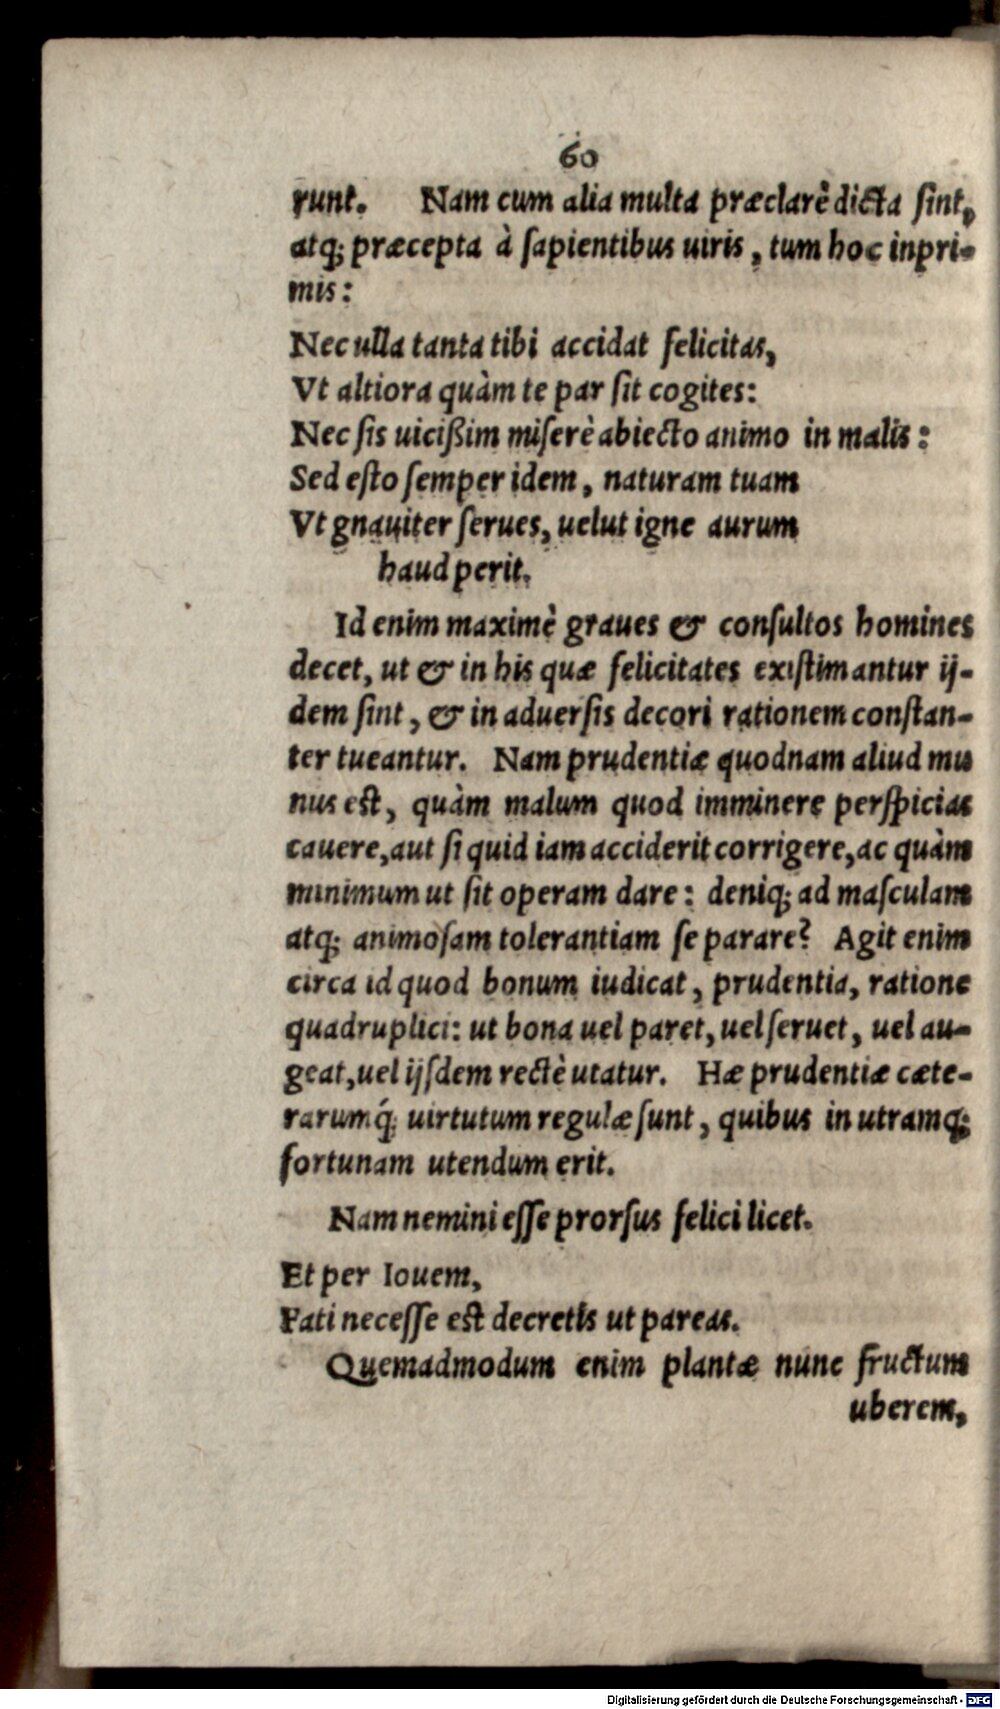 60
runt. Nam cum alia multa præclarè dicta ſint,
atq; præcepta à ſapientibus uiris, tum hoc inpri-
mis:
Nec ulla tanta tibi accidat felicitas,
Vt altiora quàm te par ſit cogites:
Nec ſis uiciſßim miſerè abiecto animo in malis:
Sed eſto ſemper idem, naturam tuam
Vt gnauiter ſerues, uelut igne aurum
haud perit.
Id enim maximè graues & conſultos homines
decet, ut & in his quæ felicitates exiſtimantur ij-
dem ſint, & in aduerſis decori rationem conſtan-
ter tueantur. Nam prudentiæ quodnam aliud mu
nus eſt, quàm malum quod imminere perſpicias
cauere, aut ſi quid iam acciderit corrigere, ac quàm
minimum ut ſit operam dare: deniq; ad maſculam
atq; animoſam tolerantiam ſe parare? Agit enim
circa id quod bonum iudicat, prudentia, ratione
quadruplici: ut bona uel paret, uel ſeruet, uel au-
geat, uel ijſdem rectè utatur. Hæ prudentiæ cæte-
rarumq́; uirtutum regulæ ſunt, quibus in utramq;
fortunam utendum erit.
Nam nemini eſſe prorſus felici licet.
Et per Iouem,
Fati neceſſe eſt decretis ut pareas.
Quemadmodum enim plantæ nunc fructum
uberem,
Digitalisierung gefördert durch die Deutsche Forschungsgemeinschaft - DFG